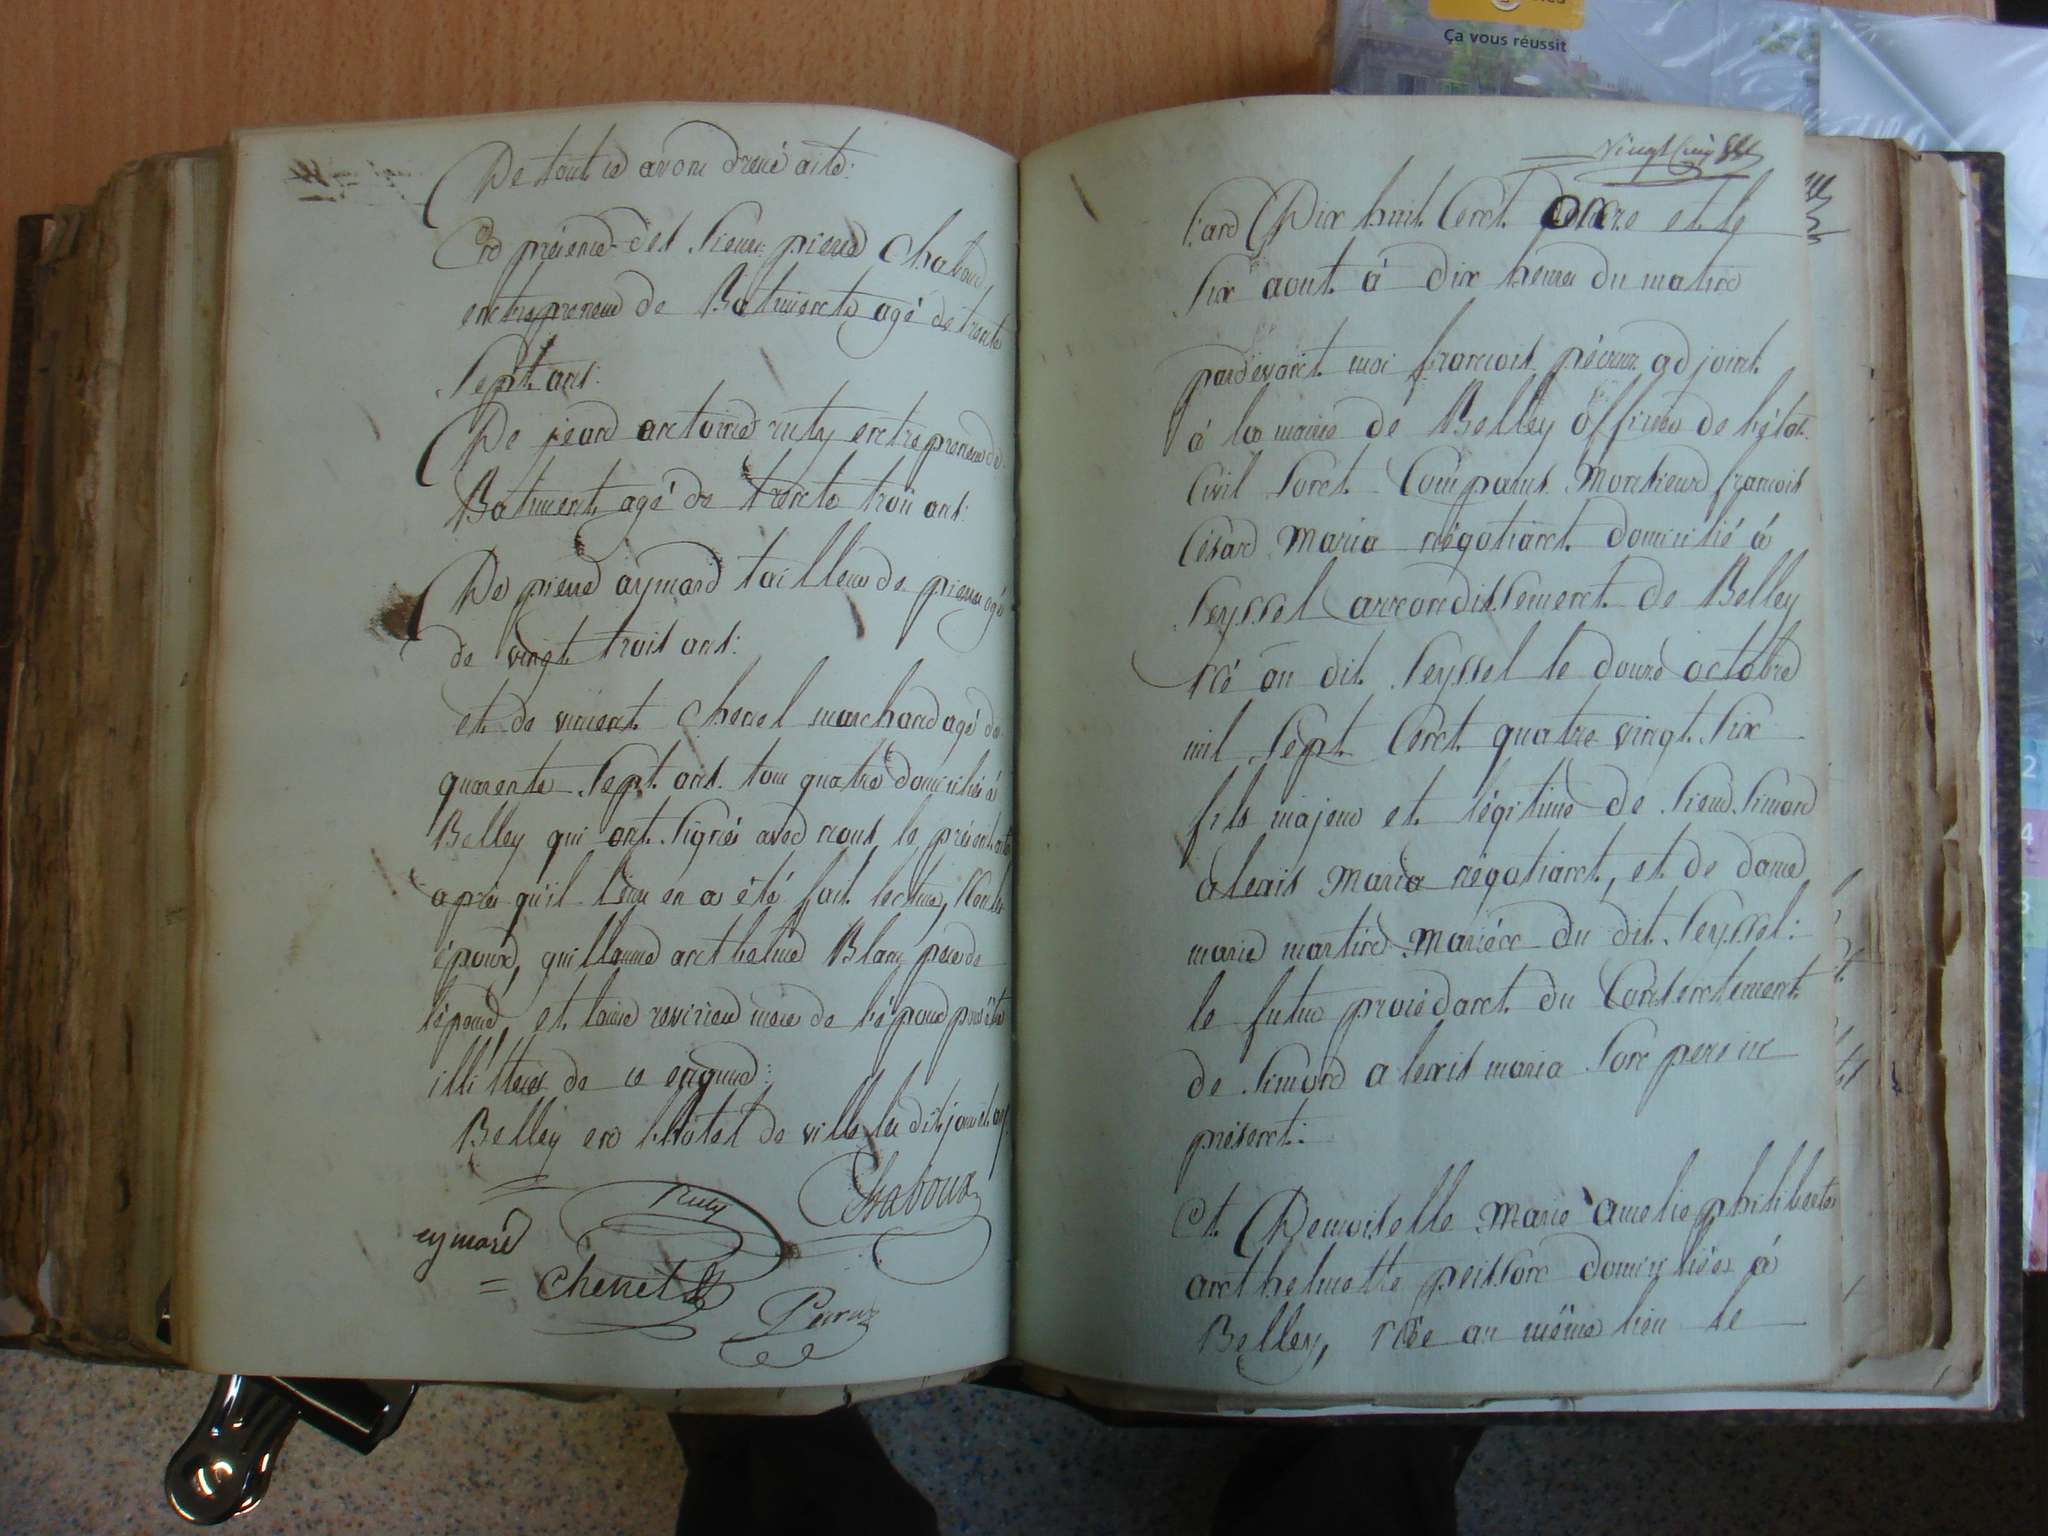 De tout ce avons dressé acte:
En présence des Sieurs pierre Chaboud
entrepreneur de Batiments agé de trente
Sept ans:
De jean antoine ruty entrepreneur de
Batiment agé de trente trois ans:
De pierre aymard tailleur de pierre agé
de vingt trois ans:
et de vincent Chenel marchand agé de
quarente Sept ans tous quatre domiciliés à
Belley qui ont Signés avec nous le présent acte
après qu'il leur en a été fait lecture,
épouse, guillaume anthelme Blanc pere de
l'épouse, et mere de l'épouse pour être
illitteres de ce enquis:
Belley en l'hotel de ville les dits jour et an
Ruty
Chaboud
eymard
Chenel
Vingt Cinq
l'an Dix huit Cent onze et le
Six aout à dix heures du matin
pardevant moi françois adjoint
à la mairie de Belley officier de l'état
Civil Sont Comparus Monsieur françois
César Maria négotiant domicilié à
Seyssel arrondissement de Belley
né au dit Seyssel le douze octobre
mil Sept Cent quatre vingt Six
fils majeur et légitime de Sieur Simond
alexis Maria négotiant, et de dame
marie martine du dit Seyssel:
le futur procédant du Consentement
de Simond alexis maria Son pere ici
présent:
Et Demoiselle Marie amelie philiberte
anthelmette peisson domiciliée à
Belley, née au même lieu le
Ça vous réussit
2
4
3